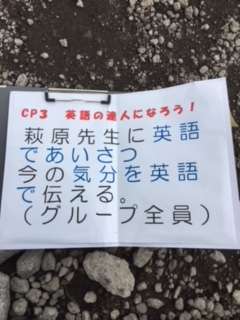 CP3 英語の達人になろう!
萩原先生に英語
であいさつ
今の気分を英語
で伝える。
(グループ全員)